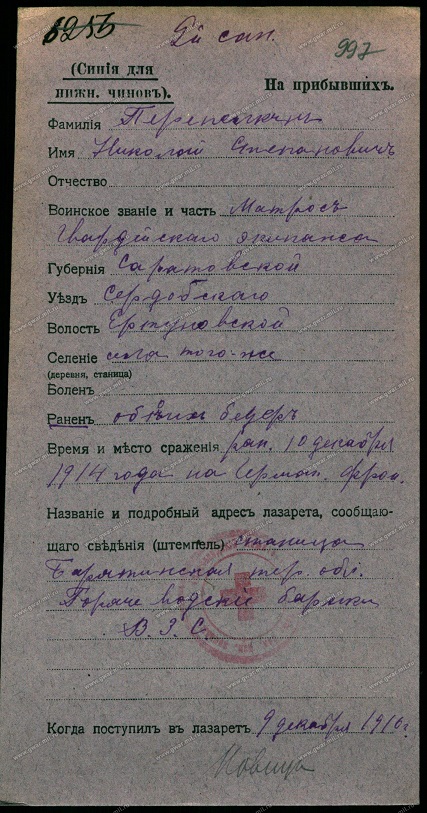 8256
997
(Синія для
нижн. чиновъ).
На прибывшихъ.
Фамилія
Имя Николай Степановичъ
Отчество
Воинское званіе и часть Матросъ
Гвардейскаго экипажа
Губернія Саратовской
Уѣздъ Сердобскаго
Волость
Селеніе села того-же
(деревня, станица)
Боленъ
Раненъ обѣихъ бедеръ
Время и мѣсто сраженія ран. 10 декабря
1914 года на Герман. фрон.
Названіе и подробный адресъ лазарета, сообщаю-
щаго свѣдѣнія (штемпель) станица
тер. обл.
бараки
В. З. С.
Когда поступилъ въ лазаретъ 9 декабря 1916 г.